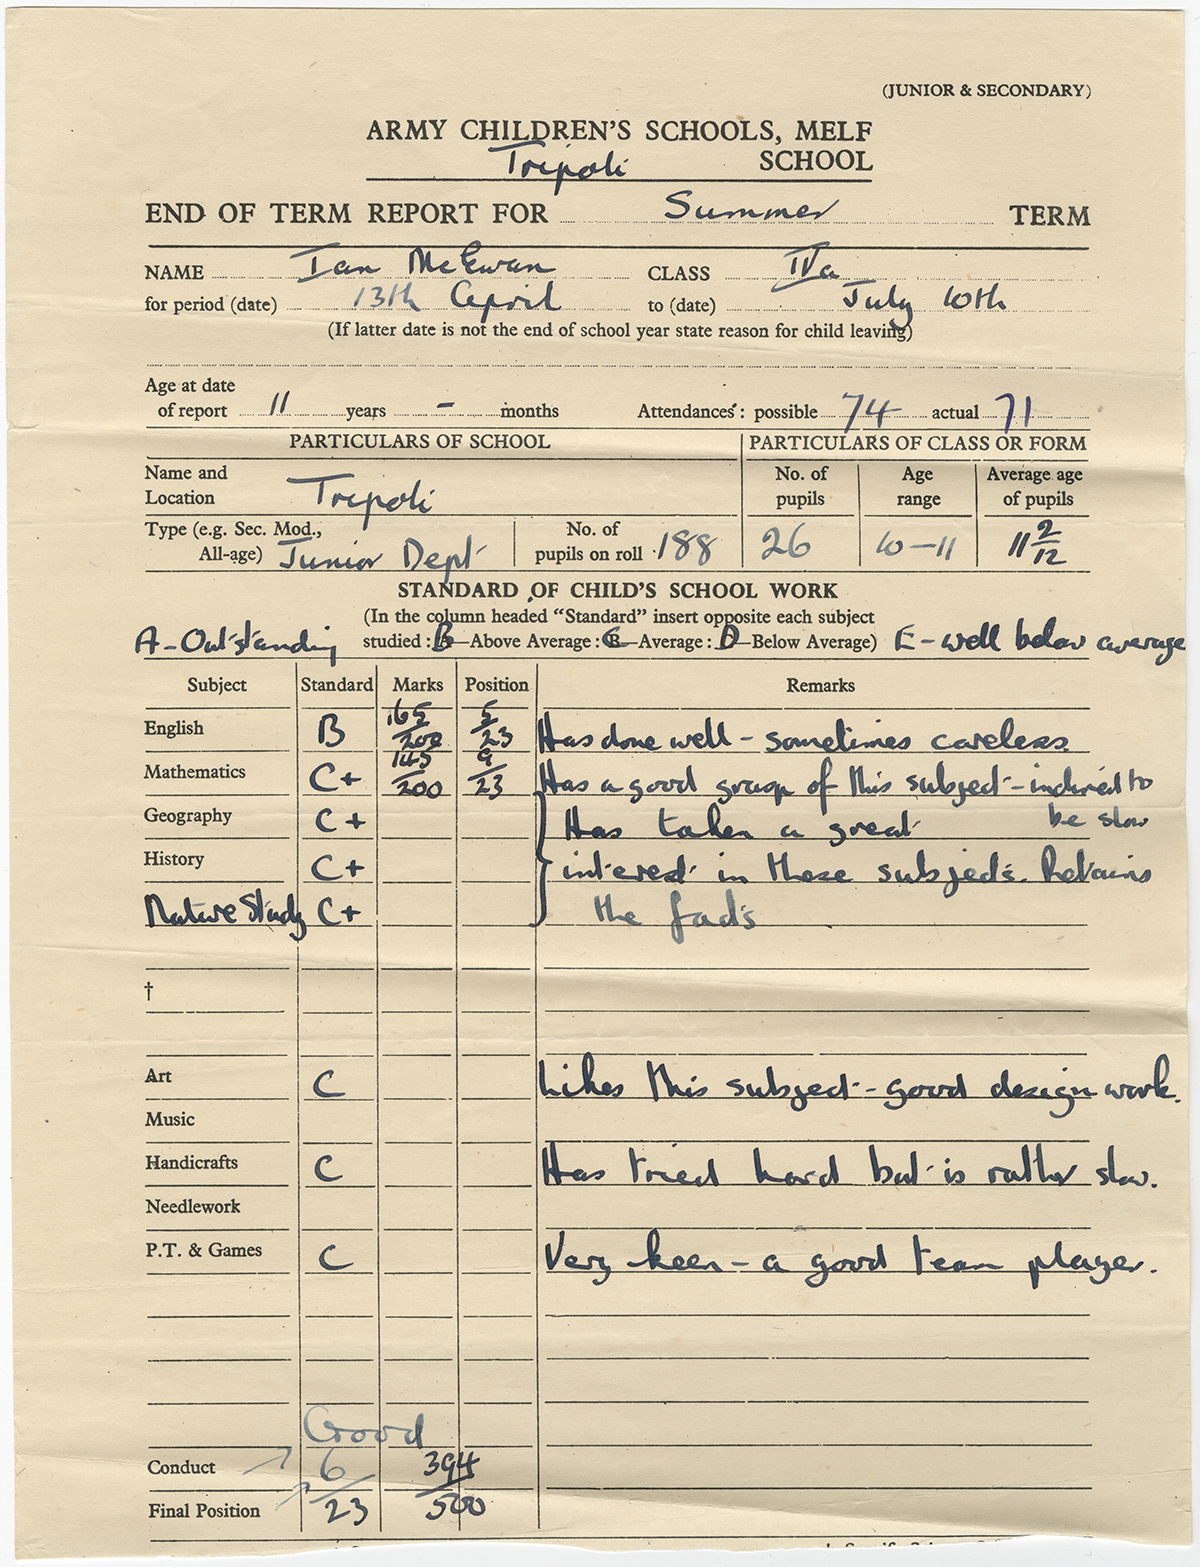 (JUNIOR & SECONDARY)
ARMY CHILDREN'S SCHOOLS, MELF
Tripoli SCHOOL
END OF TERM REPORT FOR Summer TERM
NAME Ian McEwan CLASS IVa
for period (date) 13th April to (date) July 10th
(If latter date is not the end of school year state reason for child leaving)
Age at date
of report 11 years - months Attendances: possible 74 actual 71
PARTICULARS OF SCHOOL PARTICULARS OF CLASS OR FORM
Name and Location Tripoli No. of pupils Age range Average age of pupils
Type (e.g. Sec. Mod., All-age) Junior Dept No. of pupils on roll 188 26 10-11 11 2/12
STANDARD OF CHILD'S SCHOOL WORK
(In the column headed "Standard" insert opposite each subject
A-Outstanding studied: B—Above Average: C—Average: D—Below Average) E-well below average
Subject Standard Marks Position Remarks
English B 165/200 5/23 Has done well - sometimes careless.
Mathematics C+ 145/200 9/23 Has a good grasp of this subject - inclined to
be slow
Geography C+ Has taken a great
History C+ interest in these subjects. Retains
Nature Study C+ the facts
†
Art C Likes this subject - good design work.
Music
Handicrafts C Has tried hard but is rather slow.
Needlework
P.T. & Games C Very keen - a good team player.
Good
Conduct 6 394
Final Position 23 500